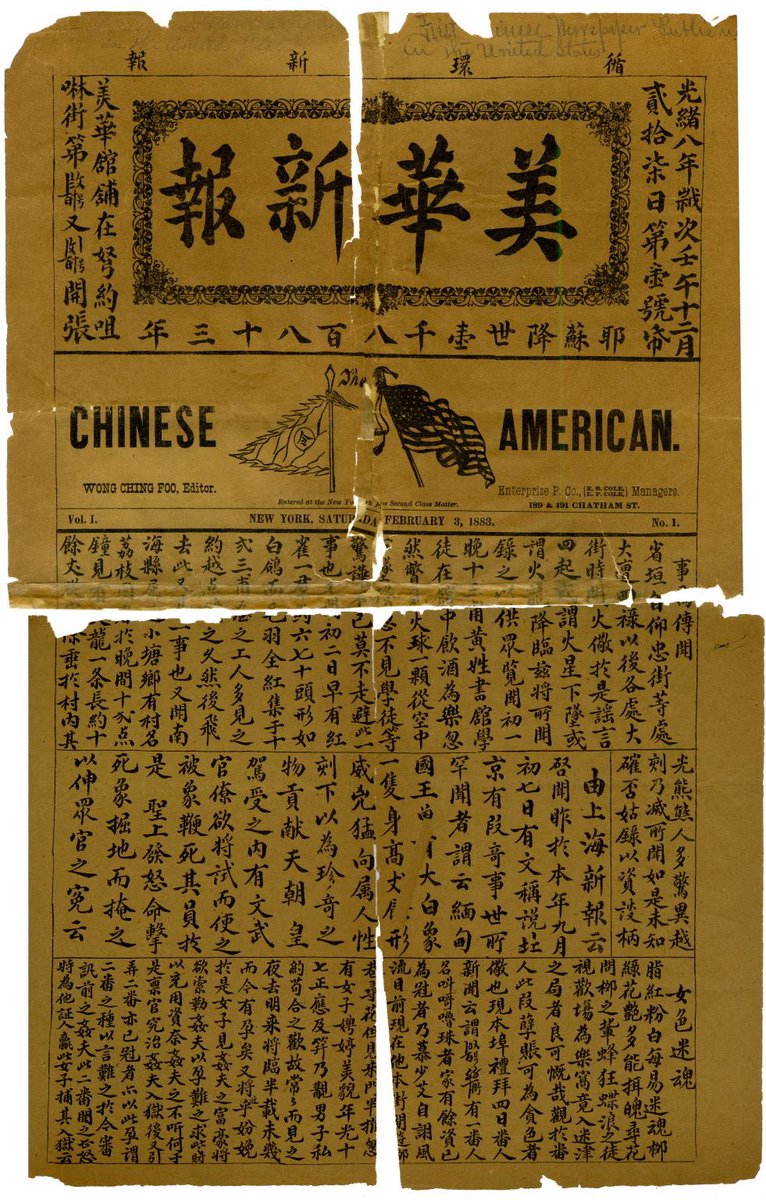 First Chinese Newspaper Publishe
in the United States
循環新報
光緒八年歲次壬午十二月
貳拾柒日第壹號
美華新報
美華館舖在弩約咀
啉街第又開張
耶蘇降世壹千八百八十三年
The
CHINESE AMERICAN.
WONG CHING FOO, Editor.
Entered at the New York as Second Class Matter.
Enterprise P. Co., {E. B. COLE, L. P. COLE,} Managers.
189 & 191 CHATHAM ST.
Vol. I. NEW YORK, SATURDA FEBRUARY 3, 1883. No. 1.
事傳聞
省垣仰忠街等處
大祿以後各處大
街時聞火儆於是謠言
四起或謂火星下墜或
謂火龍降臨茲將所聞
錄之以供眾覽聞初一
晚十三甫黃姓書館學
徒在館中飲酒為樂忽
然瞥見火球一顆從空中
忽不見學徒等
驚已莫不走避此一
事也初二日早有紅
雀一約六七十頭形如
白鴿而毛羽全紅集于十
弍三甫之工人多見之
約越之久然後飛
去此又一事也又聞南
海縣小塘鄉有村名
荔枝園於晚間十弍点
鐘見有龍一条長約十
餘丈垂於村內其
光熊熊人多驚異越
刻乃滅所聞如是未知
確否姑錄以資談柄
由上海新報云
啓聞昨於本年九月
初七日有文稱說
京有段奇事世所
罕聞者謂云緬甸
國王大白象
一隻身高丈形
威兇猛向属人性
刻下以為珍奇之
物貢献天朝 皇
駕受之內有文武
官僚欲將試而使之
被象鞭死其員於
是 聖上發怒命擊
死象掘地而掩之
以伸眾官之冤云
女色迷魂
脂紅粉白每易迷魂柳
綠花艷多能揖魄尋花
問柳之蜂狂蝶浪之徒
視歡場為樂窩竟入迷津
之局者良可慨哉觀於番
人此段孽賬可為貪色者
儆也現本埠禮拜四日番人
新聞云謂有一番人
名呌嚕珠者家有餘資已
為冠者乃慕少艾自謝風
流日前現在他本街
尋花但見朱門半掩忽
有女子娉婷美貌年光十
七正應及笄乃覯男子私
約苟合之歡故常而見之
夜去明來將臨半載未幾
而今有孕矣又將分娩
於是女子見姦夫之富豪將
欲索勒姦夫以孕難之求此時
以充用資奈姦夫之不听何于
是禀官究治姦夫入獄後又引
弄二番亦已冠者亦以此孕謂
二番之種以言難之於今審
訊前之姦夫此二番聞之怒
時為他証人此女子捕其入獄云